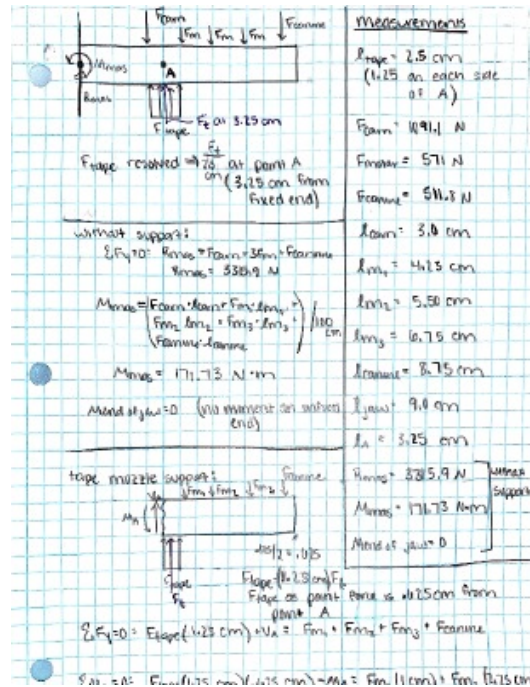 Fcarn Fm Fm Fm Fcanine
Mmas
A
Rmas
Ft at 3.25 cm
Ftape
Ftape resolved ⇒ at point A
(3.25 cm from
fixed end)
without support:
ΣFy=0: Rmas = Fcarn + 3Fm + Fcanine
Rmas = 3315.9 N
Mmas = (Fcarn·lcarn + Fm1·lm1 +
Fm2·lm2 + Fm3·lm3 +
Fcanine·lcanine) /100 cm
Mmas = 171.73 N·m
Mend of jaw = 0 (no moment on unfixed
end)
tape muzzle support:
Fm1 Fm2 Fm3 Fcanine
VA
MA
Ftape
Ft
Ftape(1.25 cm)
Ftape as point force is .625 cm from
point A
ΣFy=0: Ftape(1.25 cm) + VA = Fm1 + Fm2 + Fm3 + Fcanine
Measurements
ltape = 2.5 cm
(1.25 on each side
of A)
Fcarn = 1091.1 N
Fmolar = 571 N
Fcanine = 511.8 N
lcarn = 3.0 cm
lm1 = 4.25 cm
lm2 = 5.50 cm
lm3 = 6.75 cm
lcanine = 8.75 cm
ljaw = 9.0 cm
lA = 3.25 cm
Rmas = 3315.9 N
Mmas = 171.73 N·m
Mend of jaw = 0
without
support